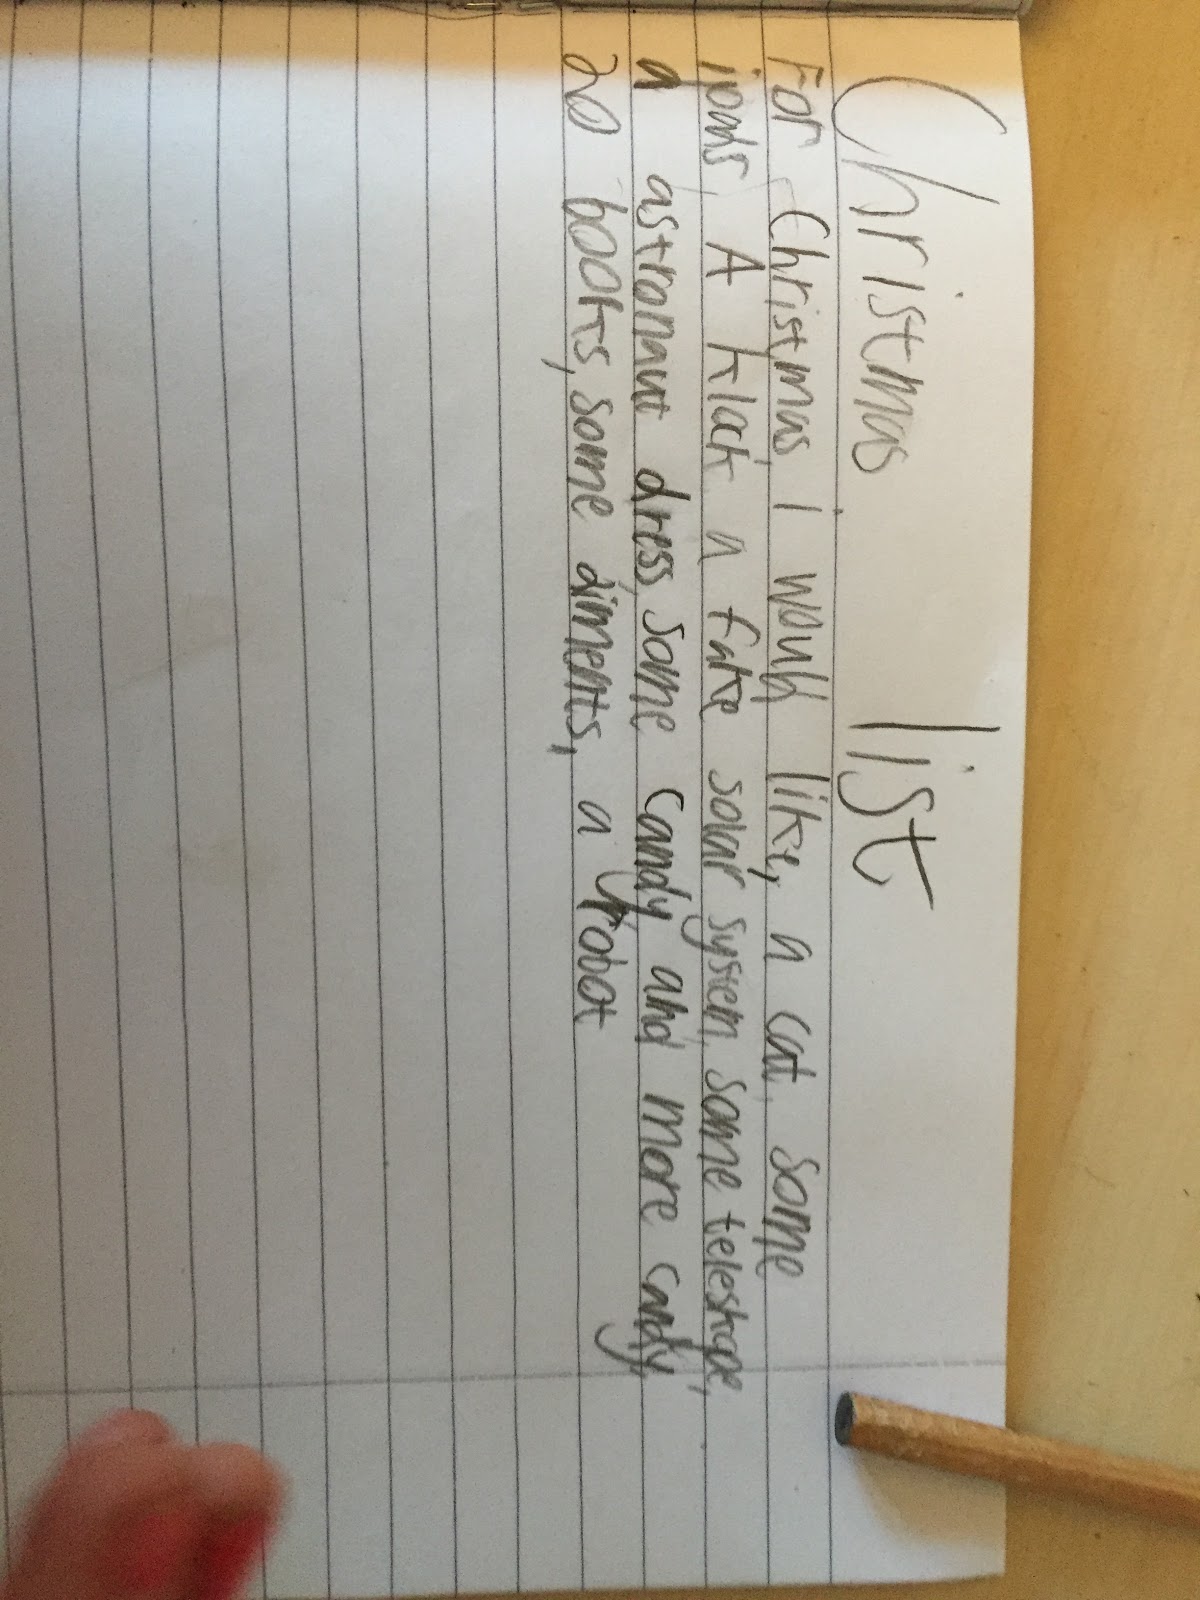 Christmas list
For Christmas i would like, a cat, some
ipods, A klack a fake solar system, some teleskope,
a astronaut dress, some candy and more candy,
20 books, some diments, a robot